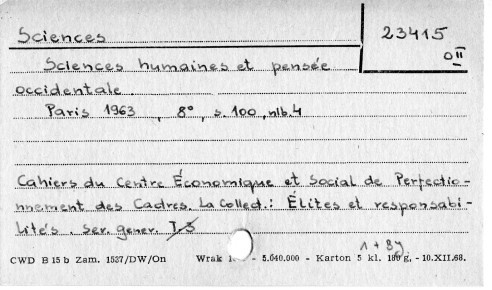 Sciences
23415
O II
Sciences humaines et pensée
occidentale.
Paris 1963, 8°, s. 100, nlb. 4
Cahiers du Centre Économique et Social de Perfectio-
nnement des Cadres. La Collect.: Élites et responsabi-
lités. Ser. gener. I-3
1 + 8y
CWD B 15 b Zam. 1537/DW/On Wrak - 5.640.000 - Karton 5 kl. 180 g. - 10.XII.68.